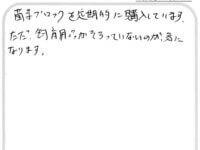 ブロックを定期的に購入しています。
ただ、飼育用がそろっていないのが、気に
なります。